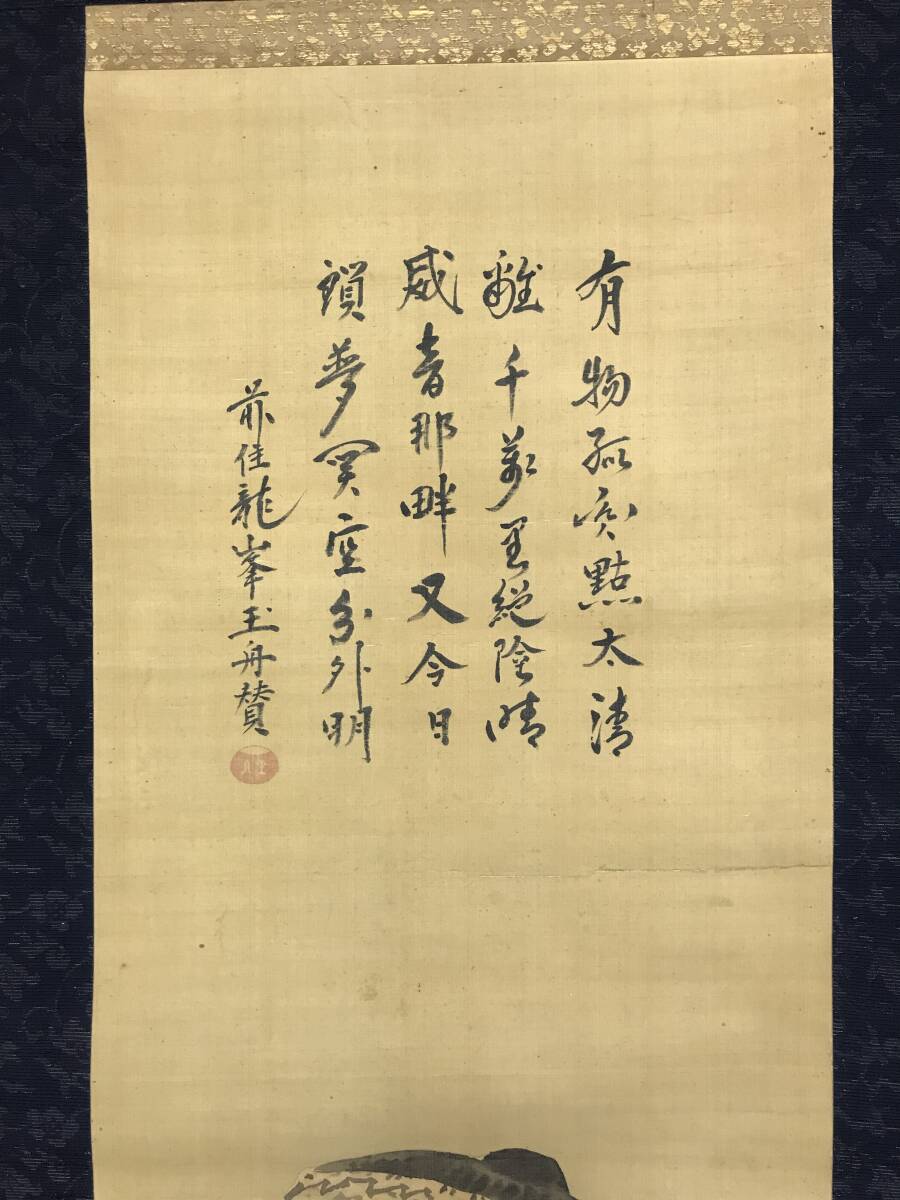 有物孤突點太清
離千萬里絶陰晴
威音那畔又今日
鎖夢関空分外明
前住龍峯玉舟賛